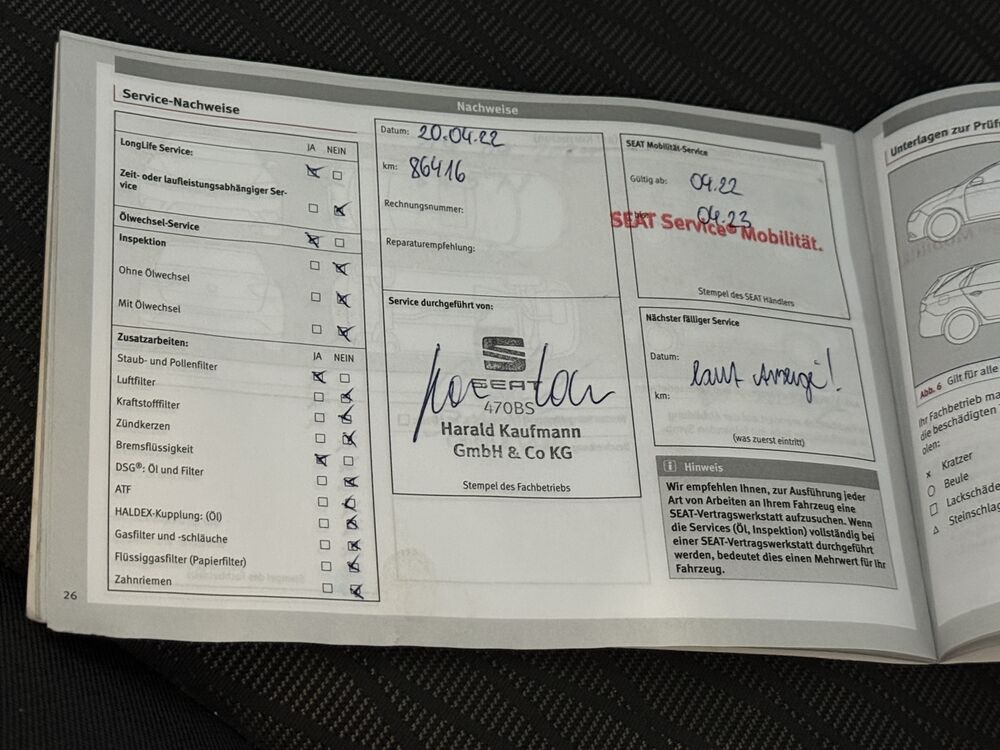 Nachweise
Service-Nachweise
JA NEIN
LongLife Service:
Zeit- oder laufleistungsabhängiger Ser-
vice
Ölwechsel-Service
Inspektion
Ohne Ölwechsel
Mit Ölwechsel
Zusatzarbeiten:
JA NEIN
Staub- und Pollenfilter
Luftfilter
Kraftstofffilter
Zündkerzen
Bremsflüssigkeit
DSG®: Öl und Filter
ATF
HALDEX-Kupplung: (Öl)
Gasfilter und -schläuche
Flüssiggasfilter (Papierfilter)
Zahnriemen
26
Datum: 20.04.22
km: 86416
Rechnungsnummer:
Reparaturempfehlung:
Service durchgeführt von:
SEAT
470BS
Harald Kaufmann
GmbH & Co KG
Stempel des Fachbetriebs
SEAT Mobilität-Service
Gültig ab: 04.22
04.23
SEAT Service® Mobilität.
Stempel des SEAT Händlers
Nächster fälliger Service
Datum: laut Anzeige!
km:
(was zuerst eintritt)
i Hinweis
Wir empfehlen Ihnen, zur Ausführung jeder
Art von Arbeiten an Ihrem Fahrzeug eine
SEAT-Vertragswerkstatt aufzusuchen. Wenn
die Services (Öl, Inspektion) vollständig bei
einer SEAT-Vertragswerkstatt durchgeführt
werden, bedeutet dies einen Mehrwert für Ihr
Fahrzeug.
Unterlagen zur Prüf
Abb. 6 Gilt für alle
Ihr Fachbetrieb ma
die beschädigten
olen:
x Kratzer
Beule
Lackschäde
Steinschlag